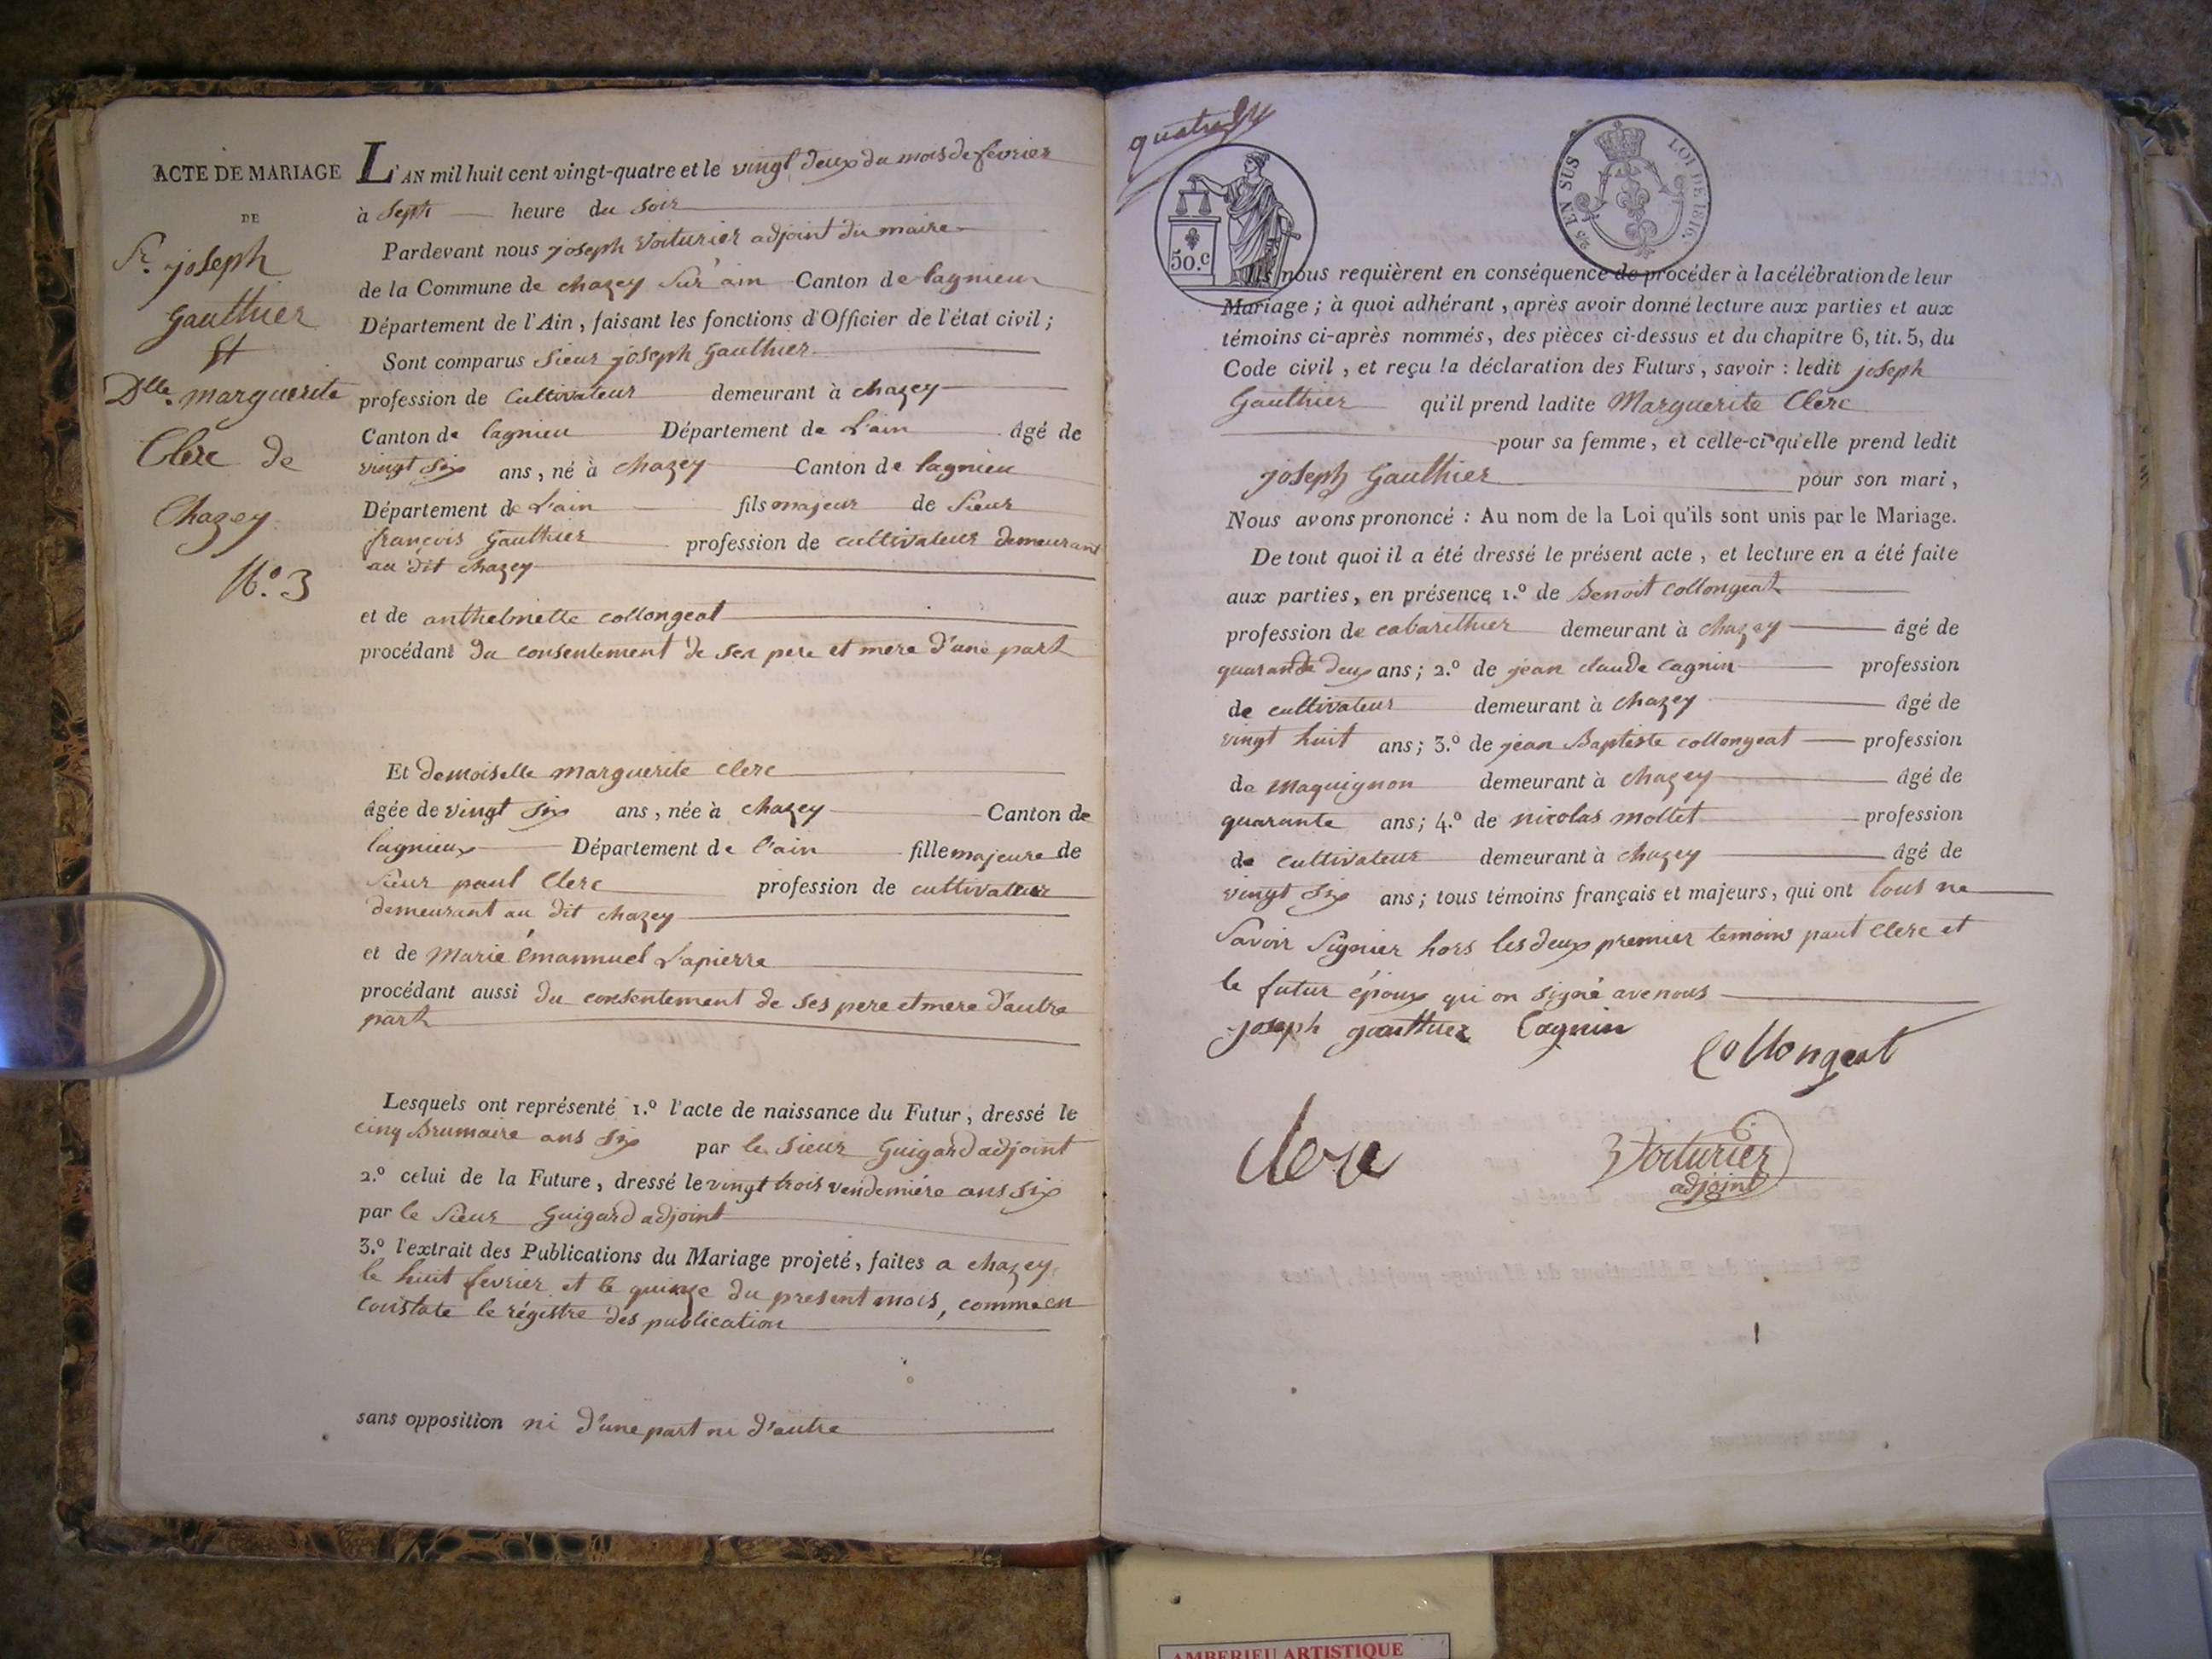 ACTE DE MARIAGE
DE
Sr. joseph
Gauthier
Et
Dlle. marguerite
Clerc de
Chazey
N.o 3
L'AN mil huit cent vingt-quatre et le vingt deux du mois de fevrier
à Sept heure du Soir
Pardevant nous joseph Voiturier adjoint du maire
de la Commune de chazey Sur ain Canton de lagnieu
Département de l'Ain, faisant les fonctions d'Officier de l'état civil;
Sont comparus Sieur joseph Gauthier
profession de Cultivateur demeurant à chazey
Canton de lagnieu Département de L'ain âgé de
vingt six ans, né à chazey Canton de lagnieu
Département de L'ain fils majeur de Sieur
françois Gauthier profession de cultivateur demeurant
au dit chazey
et de anthelmette collongeat
procédant du consentement de ses pere et mere d'une part
Et demoiselle marguerite clerc
âgée de vingt six ans, née à chazey Canton de
lagnieux Département de l'ain fille majeure de
Sieur paul Clerc profession de cultivateur
demeurant au dit chazey
et de Marie émannuel Lapierre
procédant aussi du consentement de ses pere et mere d'autre
part
Lesquels ont représenté 1.o l'acte de naissance du Futur, dressé le
cinq Brumaire ans six par le Sieur Guigard adjoint
2.o celui de la Future, dressé le vingt trois vendemiére ans six
par le Sieur Guigard adjoint
3.o l'extrait des Publications du Mariage projeté, faites a chazey
le huit fevrier et le quinze du present mois, comme en
constate le régistre des publication
sans opposition ni d'une part ni d'autre
50.c
25 EN SUS
LOI DE 1816.
Ils nous requièrent en conséquence de procéder à la célébration de leur
Mariage; à quoi adhérant, après avoir donné lecture aux parties et aux
témoins ci-après nommés, des pièces ci-dessus et du chapitre 6, tit. 5, du
Code civil, et reçu la déclaration des Futurs, savoir: ledit joseph
Gauthier qu'il prend ladite Marguerite Clerc
pour sa femme, et celle-ci qu'elle prend ledit
joseph Gauthier pour son mari,
Nous avons prononcé: Au nom de la Loi qu'ils sont unis par le Mariage.
De tout quoi il a été dressé le présent acte, et lecture en a été faite
aux parties, en présence 1.o de Benoit Collongeat
profession de cabarethier demeurant à chazey âgé de
quarante deux ans; 2.o de jean claude Cagnin profession
de cultivateur demeurant à chazey âgé de
vingt huit ans; 3.o de jean Baptiste collongeat profession
de Maquignon demeurant à chazey âgé de
quarante ans; 4.o de nicolas mollet profession
de cultivateur demeurant à chazey âgé de
vingt six ans; tous témoins français et majeurs, qui ont tous ne
Savoir Signier hors les deux premier temoins paul Clerc et
le futur époux qui on signé avenous
joseph gauthier Cagnin
Collongeat
clerc
Voiturier
adjoint
AMBERIEU ARTISTIQUE